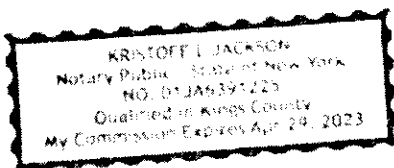 KRISTOFF L JACKSON
Notary Public State of New York
NO. 01JA6391225
Qualified in Kings County
My Commission Expires Apr 29, 2023